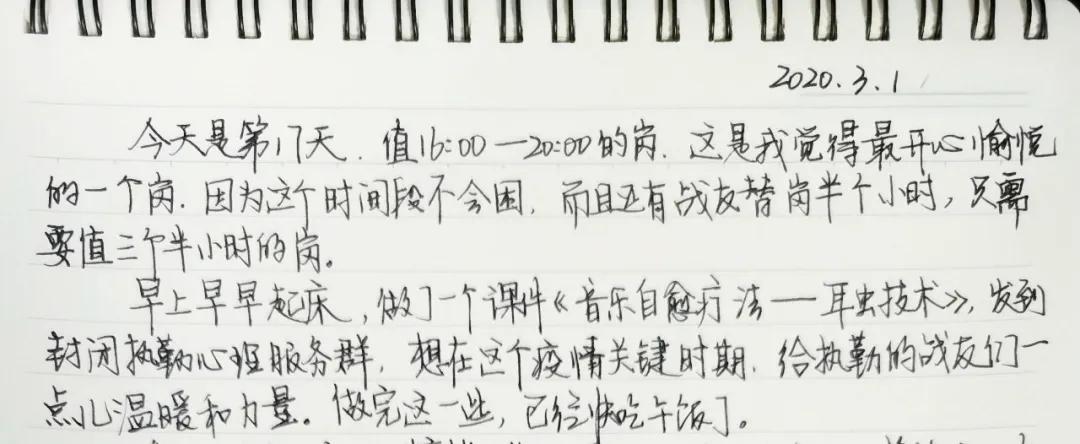 2020.3.1
今天是第17天.值16:00—20:00的岗.这是我觉得最开心愉悦
的一个岗.因为这个时间段不会困,而且还有战友替岗半个小时,只需
要值三个半小时的岗。
早上早早起床,做了一个课件《音乐自愈疗法——耳虫技术》,发到
封闭执勤心理服务群,想在这个疫情关键时期.给执勤的战友们一
点儿温暖和力量。做完这一些,已经快吃午饭了。